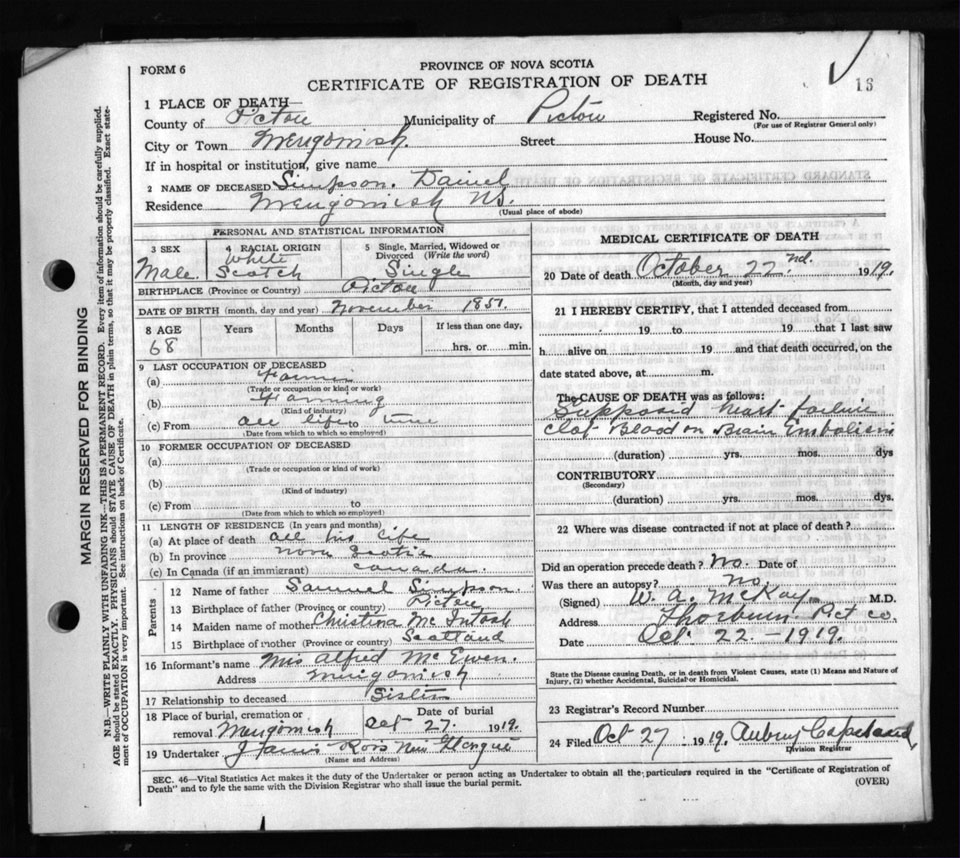 FORM 6
PROVINCE OF NOVA SCOTIA
CERTIFICATE OF REGISTRATION OF DEATH
13
1 PLACE OF DEATH—
County of Pictou Municipality of Pictou Registered No.
(For use of Registrar General only)
City or Town Merigomish Street House No.
If in hospital or institution, give name
2 NAME OF DECEASED Simpson. Daniel
Residence Merigomish NS.
(Usual place of abode)
PERSONAL AND STATISTICAL INFORMATION
3 SEX 4 RACIAL ORIGIN 5 Single, Married, Widowed or Divorced (Write the word)
Male. White Scotch Single
BIRTHPLACE (Province or Country) Pictou
DATE OF BIRTH (month, day and year) November 1851.
8 AGE Years Months Days If less than one day,
68 hrs. or min.
9 LAST OCCUPATION OF DECEASED
(a) Farmer
(Trade or occupation or kind or work)
(b) Farming
(Kind of industry)
(c) From all life to time
(Date from which to which so employed)
10 FORMER OCCUPATION OF DECEASED
(a)
(Trade or occupation or kind of work)
(b)
(Kind of industry)
(c) From to
(Date from which to which so employed)
11 LENGTH OF RESIDENCE (In years and months)
(a) At place of death all his life
(b) In province Nova Scotia
(c) In Canada (if an immigrant) Canada.
Parents
12 Name of father Samuel Simpson.
13 Birthplace of father (Province or country) Pictou
14 Maiden name of mother Christina McIntosh
15 Birthplace of mother (Province or country) Scotland
16 Informant's name Mrs Alfred McEwen.
Address Merigomish
17 Relationship to deceased Sister
18 Place of burial, cremation or removal Date of burial
Merigomish Oct 27. 1919.
19 Undertaker James Ross New Glasgow
(Name and Address)
MEDICAL CERTIFICATE OF DEATH
20 Date of death October 22nd. 1919.
(Month, day and year)
21 I HEREBY CERTIFY, that I attended deceased from
19 to 19 that I last saw
h alive on 19 and that death occurred, on the
date stated above, at m.
The CAUSE OF DEATH was as follows:
Supposed heart failure
Clot Blood on Brain Embolism
(duration) yrs. mos. dys
CONTRIBUTORY
(Secondary)
(duration) yrs. mos. dys.
22 Where was disease contracted if not at place of death?
Did an operation precede death? No. Date of
Was there an autopsy? no.
(Signed) W. A. McKay M.D.
Address Thorburn Pict co.
Date Oct 22-1919.
State the Disease causing Death, or in death from Violent Causes, state (1) Means and Nature of
Injury, (2) whether Accidental, Suicidal or Homicidal.
23 Registrar's Record Number
24 Filed Oct 27 1919, Aubrey Copeland,
Division Registrar
SEC. 46—Vital Statistics Act makes it the duty of the Undertaker or person acting as Undertaker to obtain all the particulars required in the "Certificate of Registration of
Death" and to fyle the same with the Division Registrar who shall issue the burial permit.
(OVER)
MARGIN RESERVED FOR BINDING
N.B.—WRITE PLAINLY WITH UNFADING INK—THIS IS A PERMANENT RECORD. Every item of information should be carefully supplied.
AGE should be stated EXACTLY. PHYSICIANS should STATE CAUSE OF DEATH in plain terms, so that it may be properly classified. Exact state-
ment of OCCUPATION is very important. See instructions on back of Certificate.